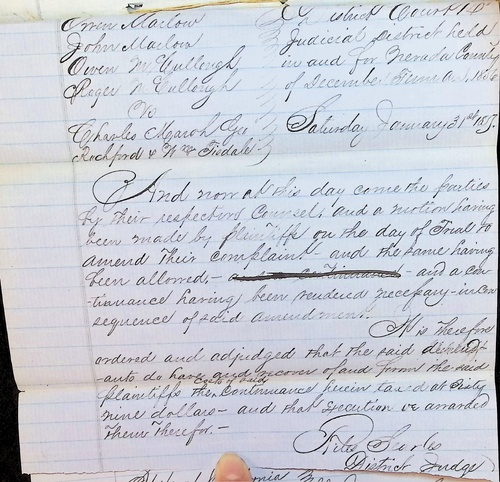 Owen Marlow District Court 14th
John Marlow Judicial District held
Owen McCullough in and for Nevada County
Roger McCullough of December Term A.D.
Vs
Charles Marsh Geo Saturday January 31st 1857
Rochford & Wm Tisdale
And now at this day come the parties
by their respective Counsel, and a motion having
been made by plaintiffs on the day of Trial to
amend their complaint - and the same having
been allowed, - - and a con
-tinuance having been rendered necessary - in con
sequence of said amendment.
It is therefore
ordered and adjudged that the said defend
-ants do have and recover of and from the said
plaintiffs the costs of said Continuance herein taxed at Sixty
nine dollars - and that execution be awarded
them therefor. -
Niles Searls
District Judge